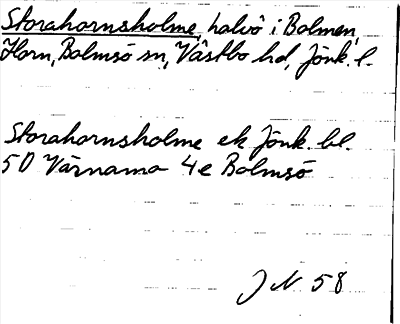 Storahornsholme, halvö i Bolmen,
Horn, Bolmsö sn, Västbo hd, Jönk. l.
Storahornsholme ek Jönk. bl.
5D Värnamo 4e Bolmsö
JN 58